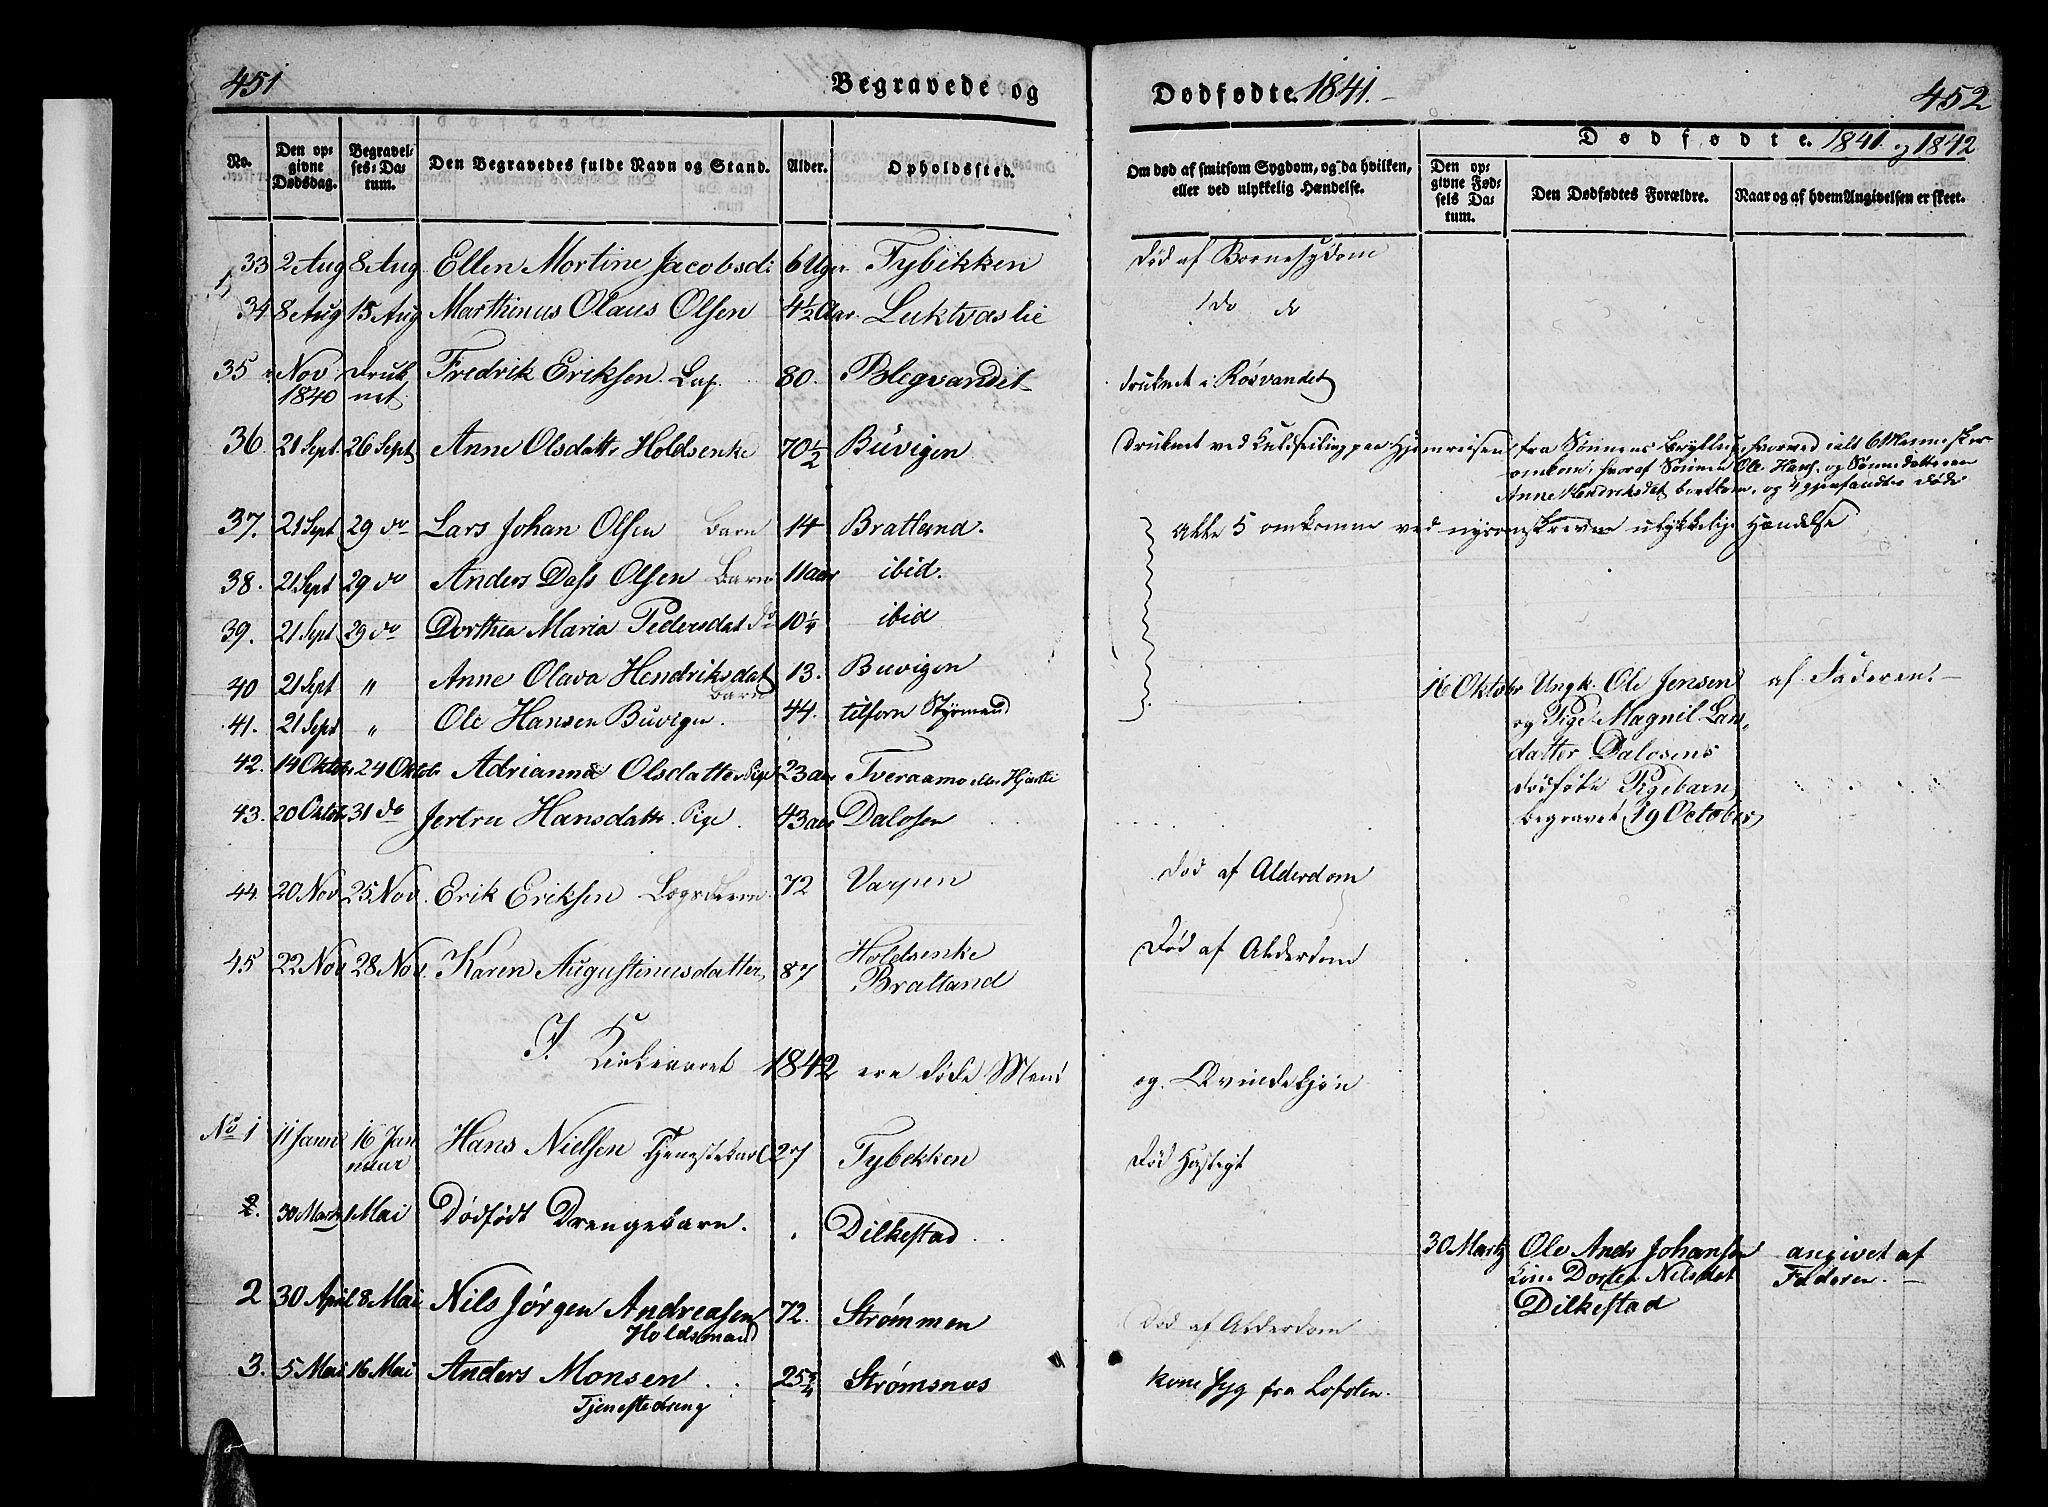 451 Begravede og Dodfødte. 1841. 452
Dødfødte. 1841. og 1842
No. Den opgivne Dødsdag. Begravelses-Datum. Den Begravedes fulde Navn og Stand. Alder. Opholdssted. Om død af smitsom Sygdom, og da hvilken, eller ved ulykkelig Hændelse. Den opgivne Fødsels Datum. Den Dødfødtes Forældre. Naar og af hvem Angivelsen er skeet.
33 2 Aug 8 Aug Ellen Mortine Jacobsd: 6 Uger Tybikken Død af Bornesygdom
34 8 Aug 15 Aug Marthinus Olaus Olsen 4½ Aar Luktvaslie Do do
35 Nov 1840 Druknet Fredrik Eriksen Lap. 80. Blegvandet druknet i Røsvandet
36 21 Sept. 26 Sept Anne Olsdatter Holdsenke 70½ Buvigen Druknet ved Kuldseiling paa Hjemreisen fra Sønnens Bryllup, hvorved ialt 6 Mennesker
omkom, hvoraf Sønnen Ole Hans. og Sønnedatteren
Anne Hendriksdat bortkom, og 4 gjenfandtes døde
37. 21 Sept 29 do Lars Johan Olsen Barn 14 Bratland. Alle 5 omkomne ved nysomskrevne ulykkelige Hændelse
38. 21 Sept 29 do Anders Dass Olsen Barn 11 aar ibid.
39. 21 Sept 29 do Dorthea Maria Pedersdat do 10¼ ibid
40 21 Sept " Anne Olava Hendriksdat Barn 13. Buvigen
41. 21 Sept " Ole Hansen Buvigen. 44. tilforn Styrmand
16 Oktobr Ungk. Ole Jensen af Faderen. —
og Pige Magnil Lars-
datter Dalosens
dødfødte Pigebarn,
begravet 19 October
42. 14 Oktobr 24 Oktobr Adrianna Olsdatter Pige 23 aar Tveraamo eller Hjartli
43. 20 Oktobr 31 do Jertru Hansdattr. Pige. 43 aar Dalosen
44. 20 Nov 25 Nov. Erik Eriksen Lægdslem 72 Varpen Død af Alderdom
45 22 Nov 28 Nov. Karen Augustinusdatter, 87 Holdsenke Bratland Død af Alderdom
I Kirkeaaret 1842 ere døde Mend og Qvindekjøn
No 1 11 Janu 16 Januar Hans Nielsen Tjenestekarl 27 Tybekken Død hastigt
2. 30 Marts 1 Mai Dødfødt Drengebarn. . Dilkestad
30 Marts Ole Andr Johansen angivet af
Kone Dorthea Nilsdat Faderen. —
Dilkestad
2 30 April 8 Mai Nils Jørgen Andreasen Holdsmand 72. Strømmen Død af Alderdom
3. 5 Mai 16 Mai Anders Monsen Tjenestedreng 25¾ Strømsnos kom syg fra Lofoten.